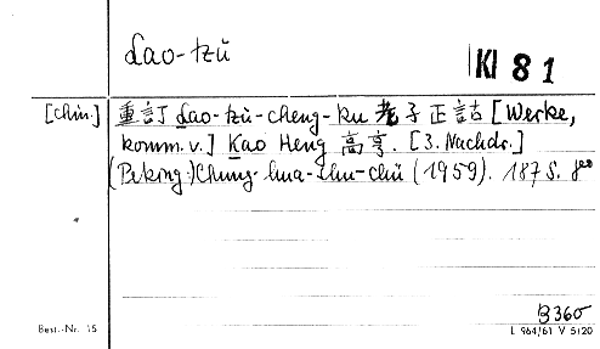 Lao-tzŭ
Kl 81
[chin.] 重訂 Lao-tzŭ-cheng-ku 老子正詁 [Werke,
komm. v.] Kao Heng 高亨. [3. Nachdr.]
(Peking:) Chung-hua-shu-chü (1959). 187 S. 8°
B360
Best.-Nr. 15
L 964/61 V 5120